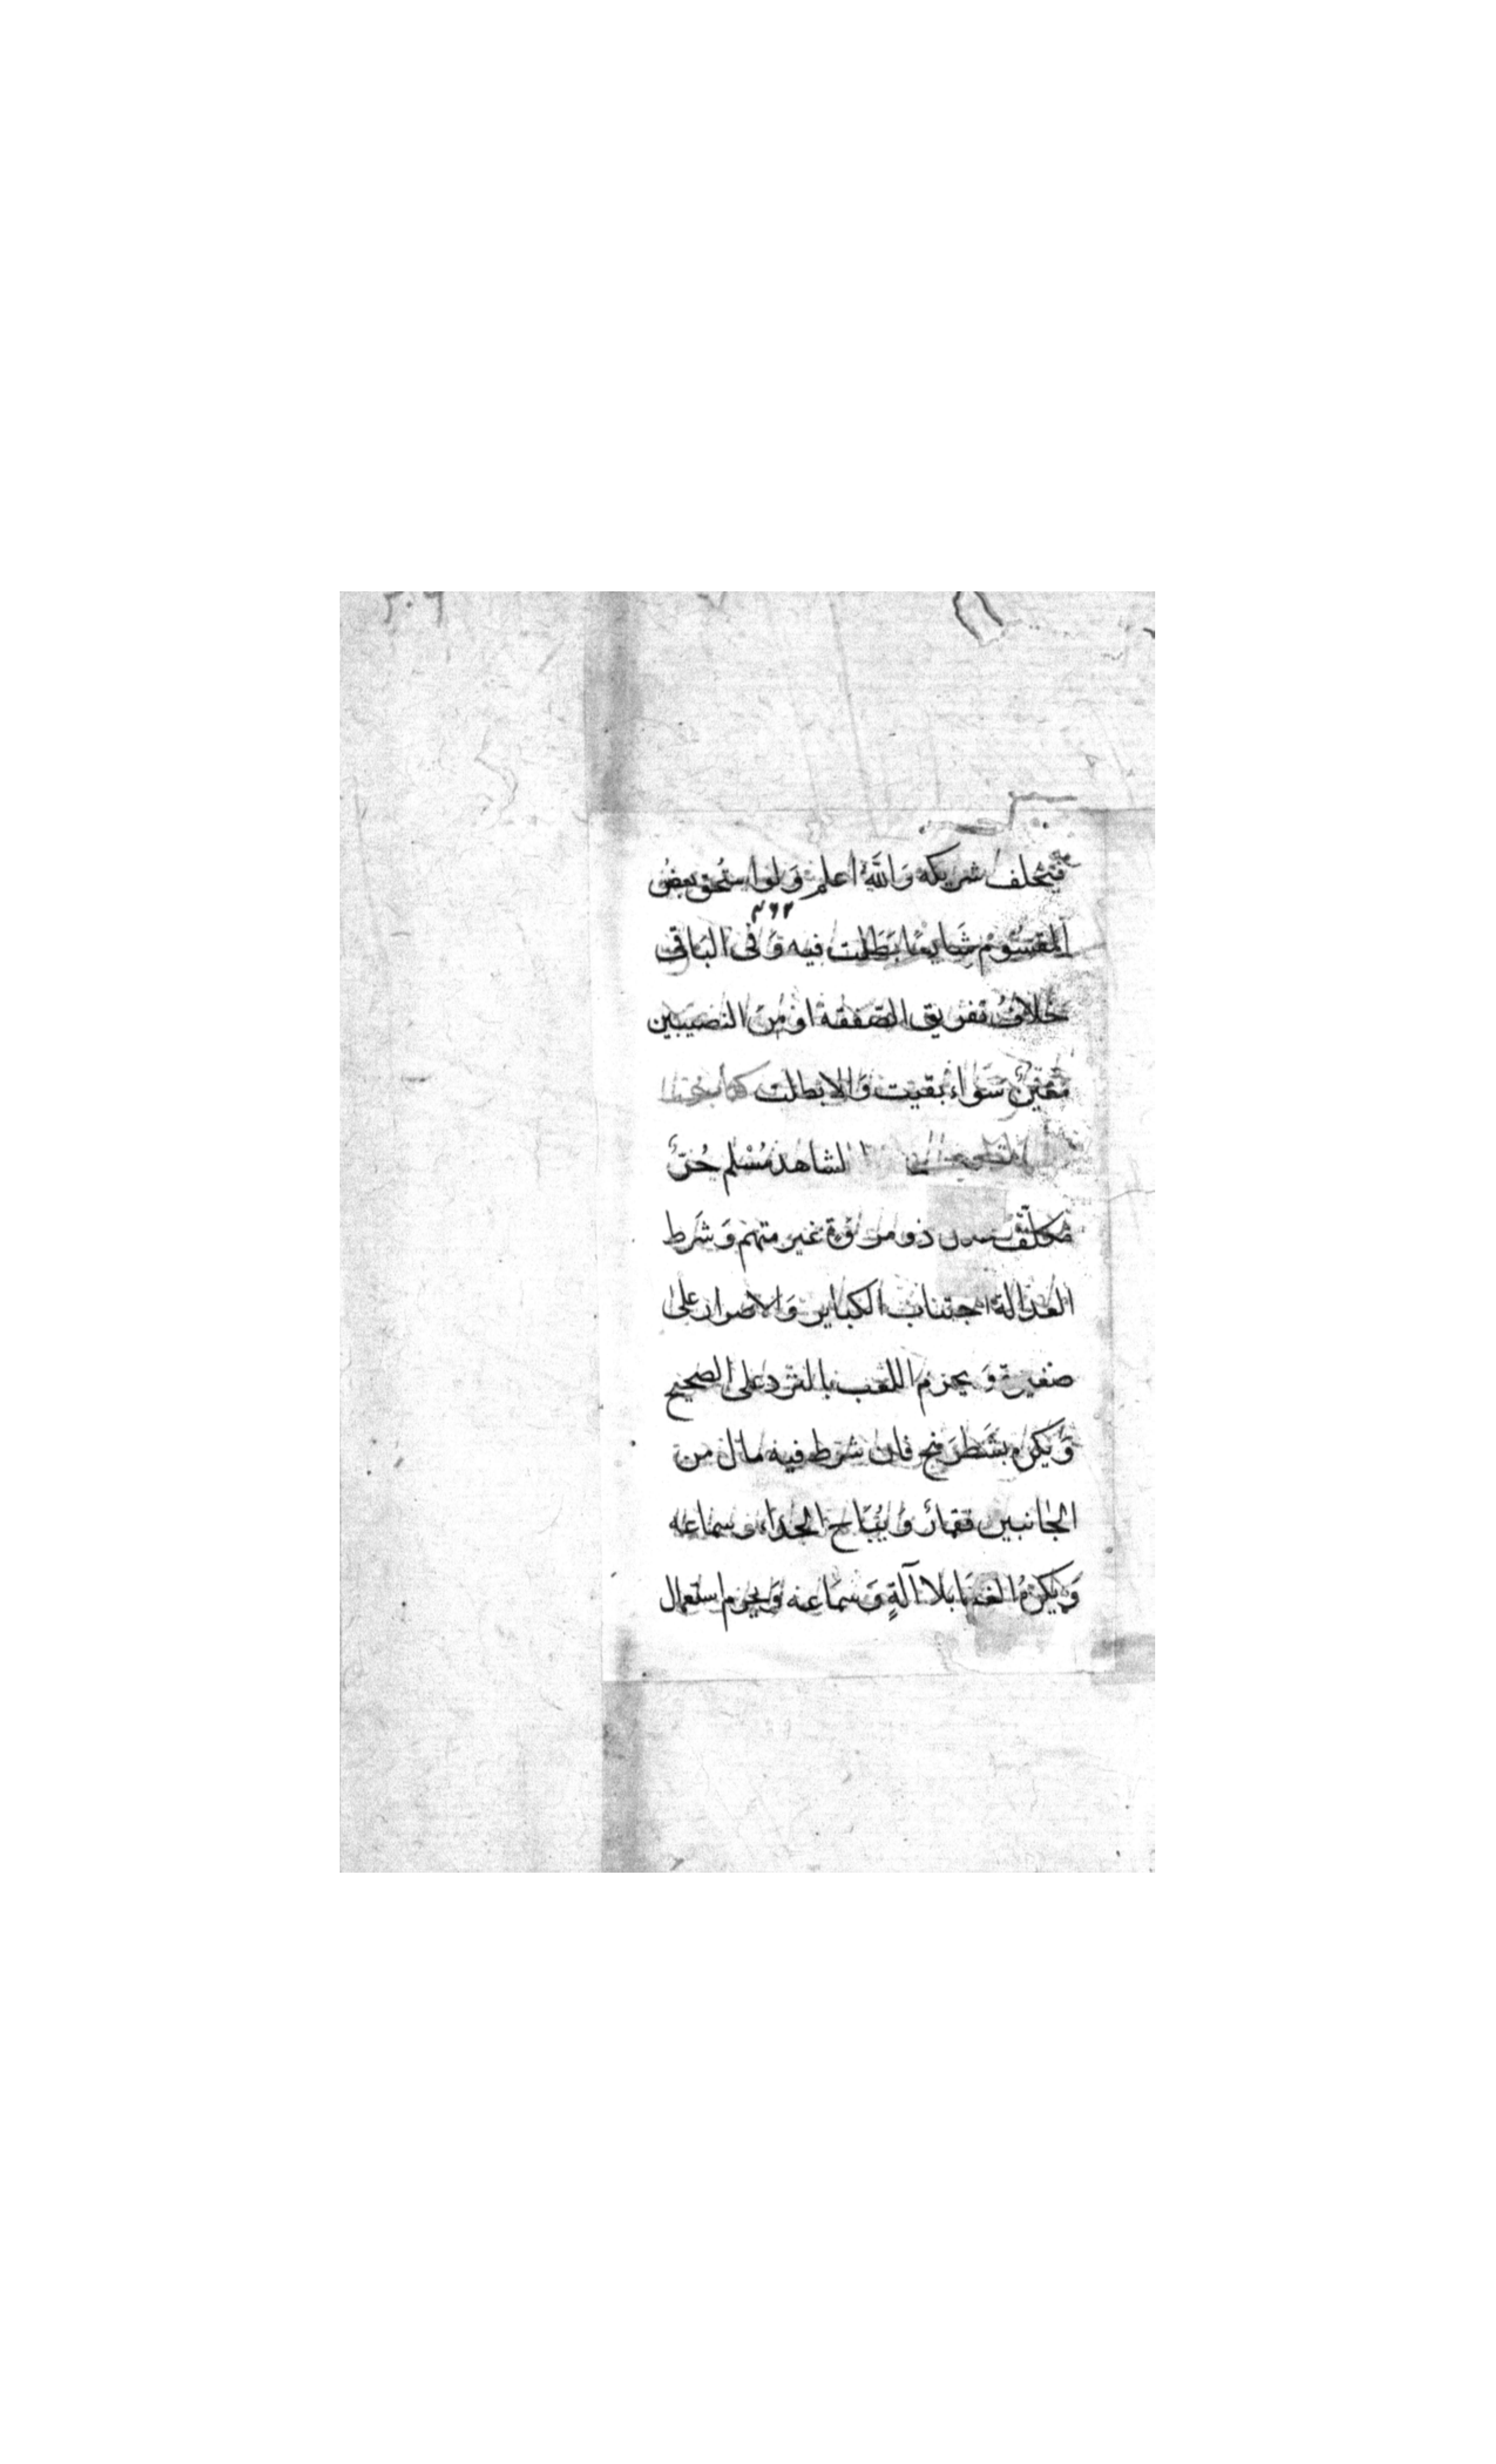 ٣٠٦
فيحلف شريكه وَاللّٰهُ اعلم وَلواستُحق بعضُ
٣٦٢
المقسُوم شَايعًا بَطَلت فيه وَفى البَاقى
خلافُ تفريق الصّفقة اومنَ النصيبَين
مُعَيّنٌ سَوَاء بقيت وَالا بطلت كتاب
الشاهد مُسْلم حُرٌّ
مُكلّف ذو مروّة غير متهم وَشَرط
العدالة اجتناب الكباير وَالاصرار على
صغيرة وَيحرم اللعب بالنرد على الصحيح
وَيكره بشَطرَنج فان شرط فيه مال من
الجَانبين فقمارٌ وَيُبَاح الحداء وسماعه
وَيكره الغنَا بلا آلةٍ وَسمَاعه وَيحرم استعمال